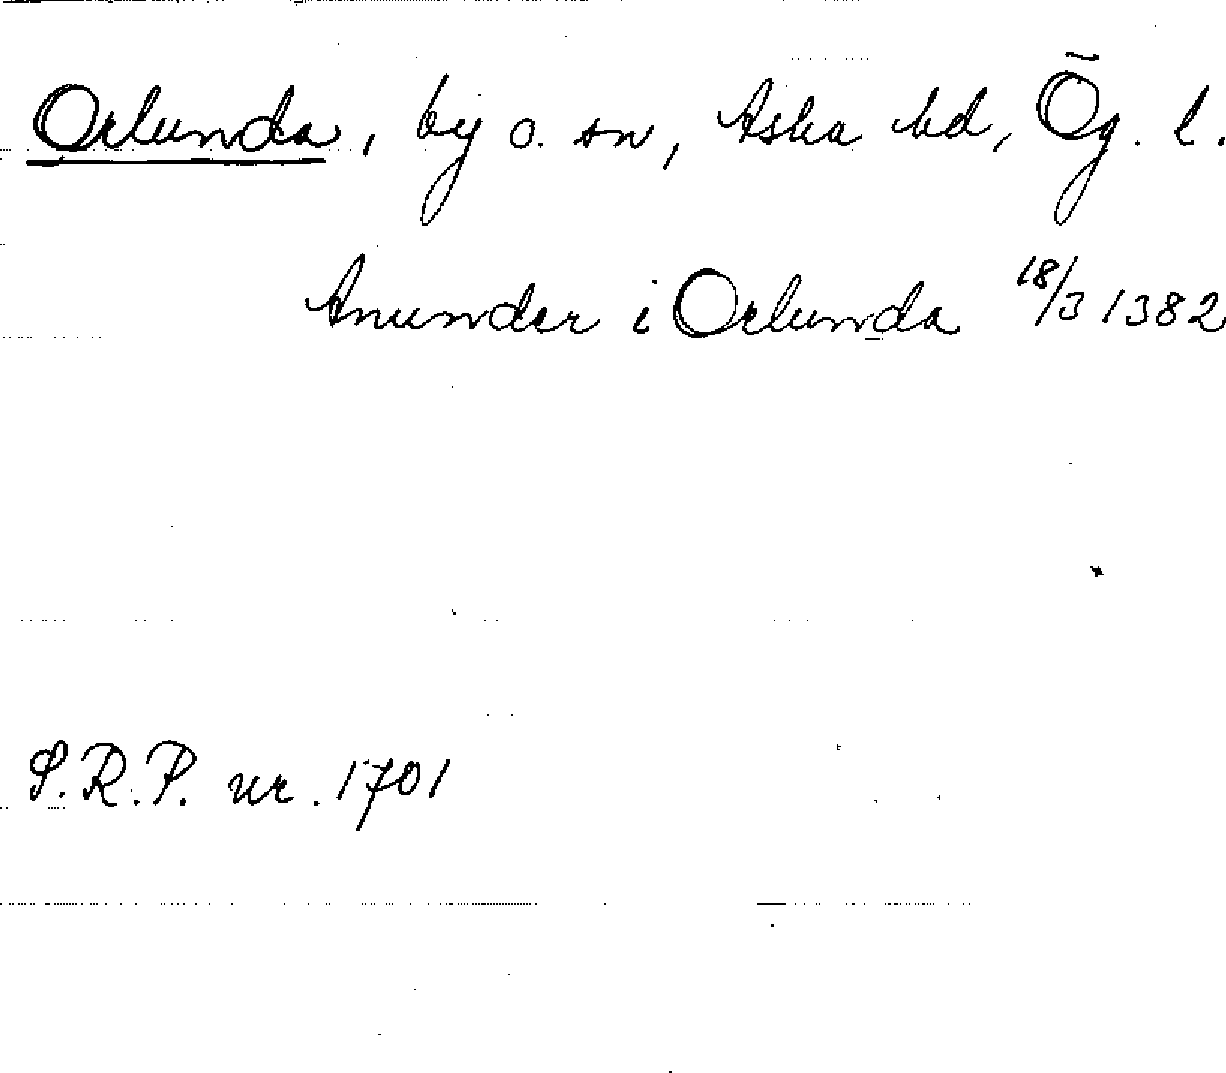 Orlunda, by o. sn, Aska hd, Ög. l.
Anundar i Orlunda 18/3 1382
S.R.P. nr. 1701